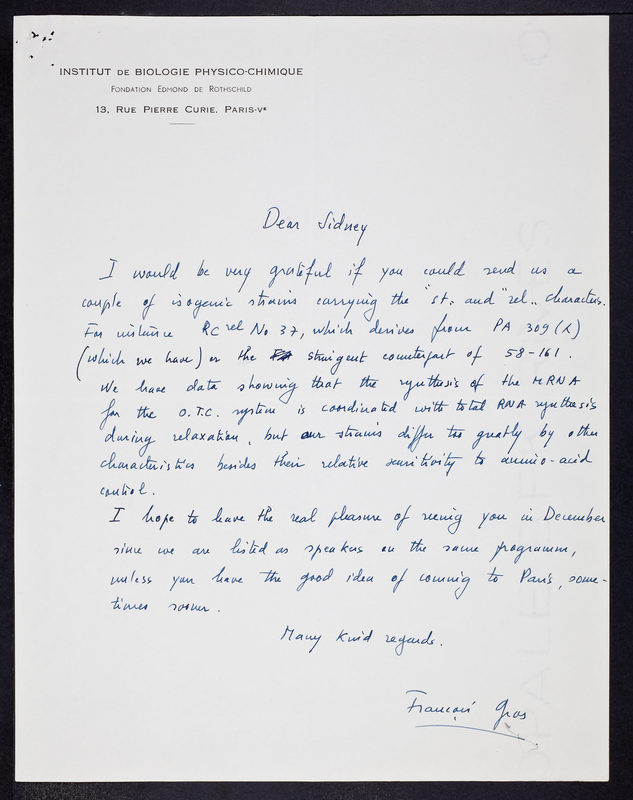 INSTITUT DE BIOLOGIE PHYSICO-CHIMIQUE
FONDATION EDMOND DE ROTHSCHILD
13, RUE PIERRE CURIE, PARIS-Ve
Dear Sidney
I would be very grateful if you could send us a
couple of isogenic strains carrying the "st" and "rel" characters.
For instance RC rel No 37, which derives from PA 309 (λ)
(which we have) or the stringent counterpart of 58-161.
We have data showing that the synthesis of the MRNA
for the O.T.C. system is coordinated with total RNA synthesis
during relaxation, but our strains differ too greatly by other
characteristics besides their relative sensitivity to amino-acid
control.
I hope to have the real pleasure of seeing you in December
since we are listed as speakers on the same programm,
unless you have the good idea of coming to Paris, some-
times sooner.
Many kind regards.
François Gros